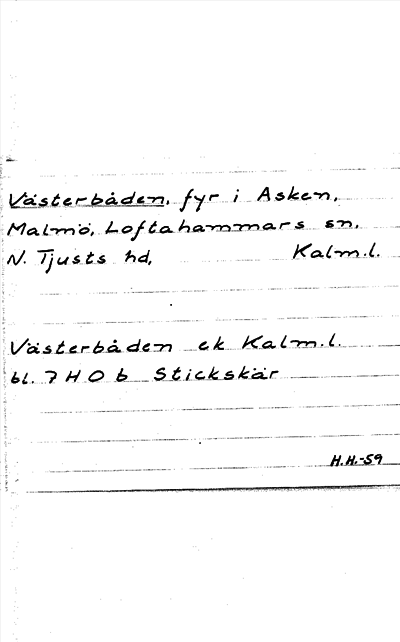 Västerbåden, fyr i Asken,
Malmö, Loftahammars sn,
N. Tjusts hd, Kalm.l.
Västerbåden ek Kalm.l.
bl. 7 H O b Stickskär
H.H.-59